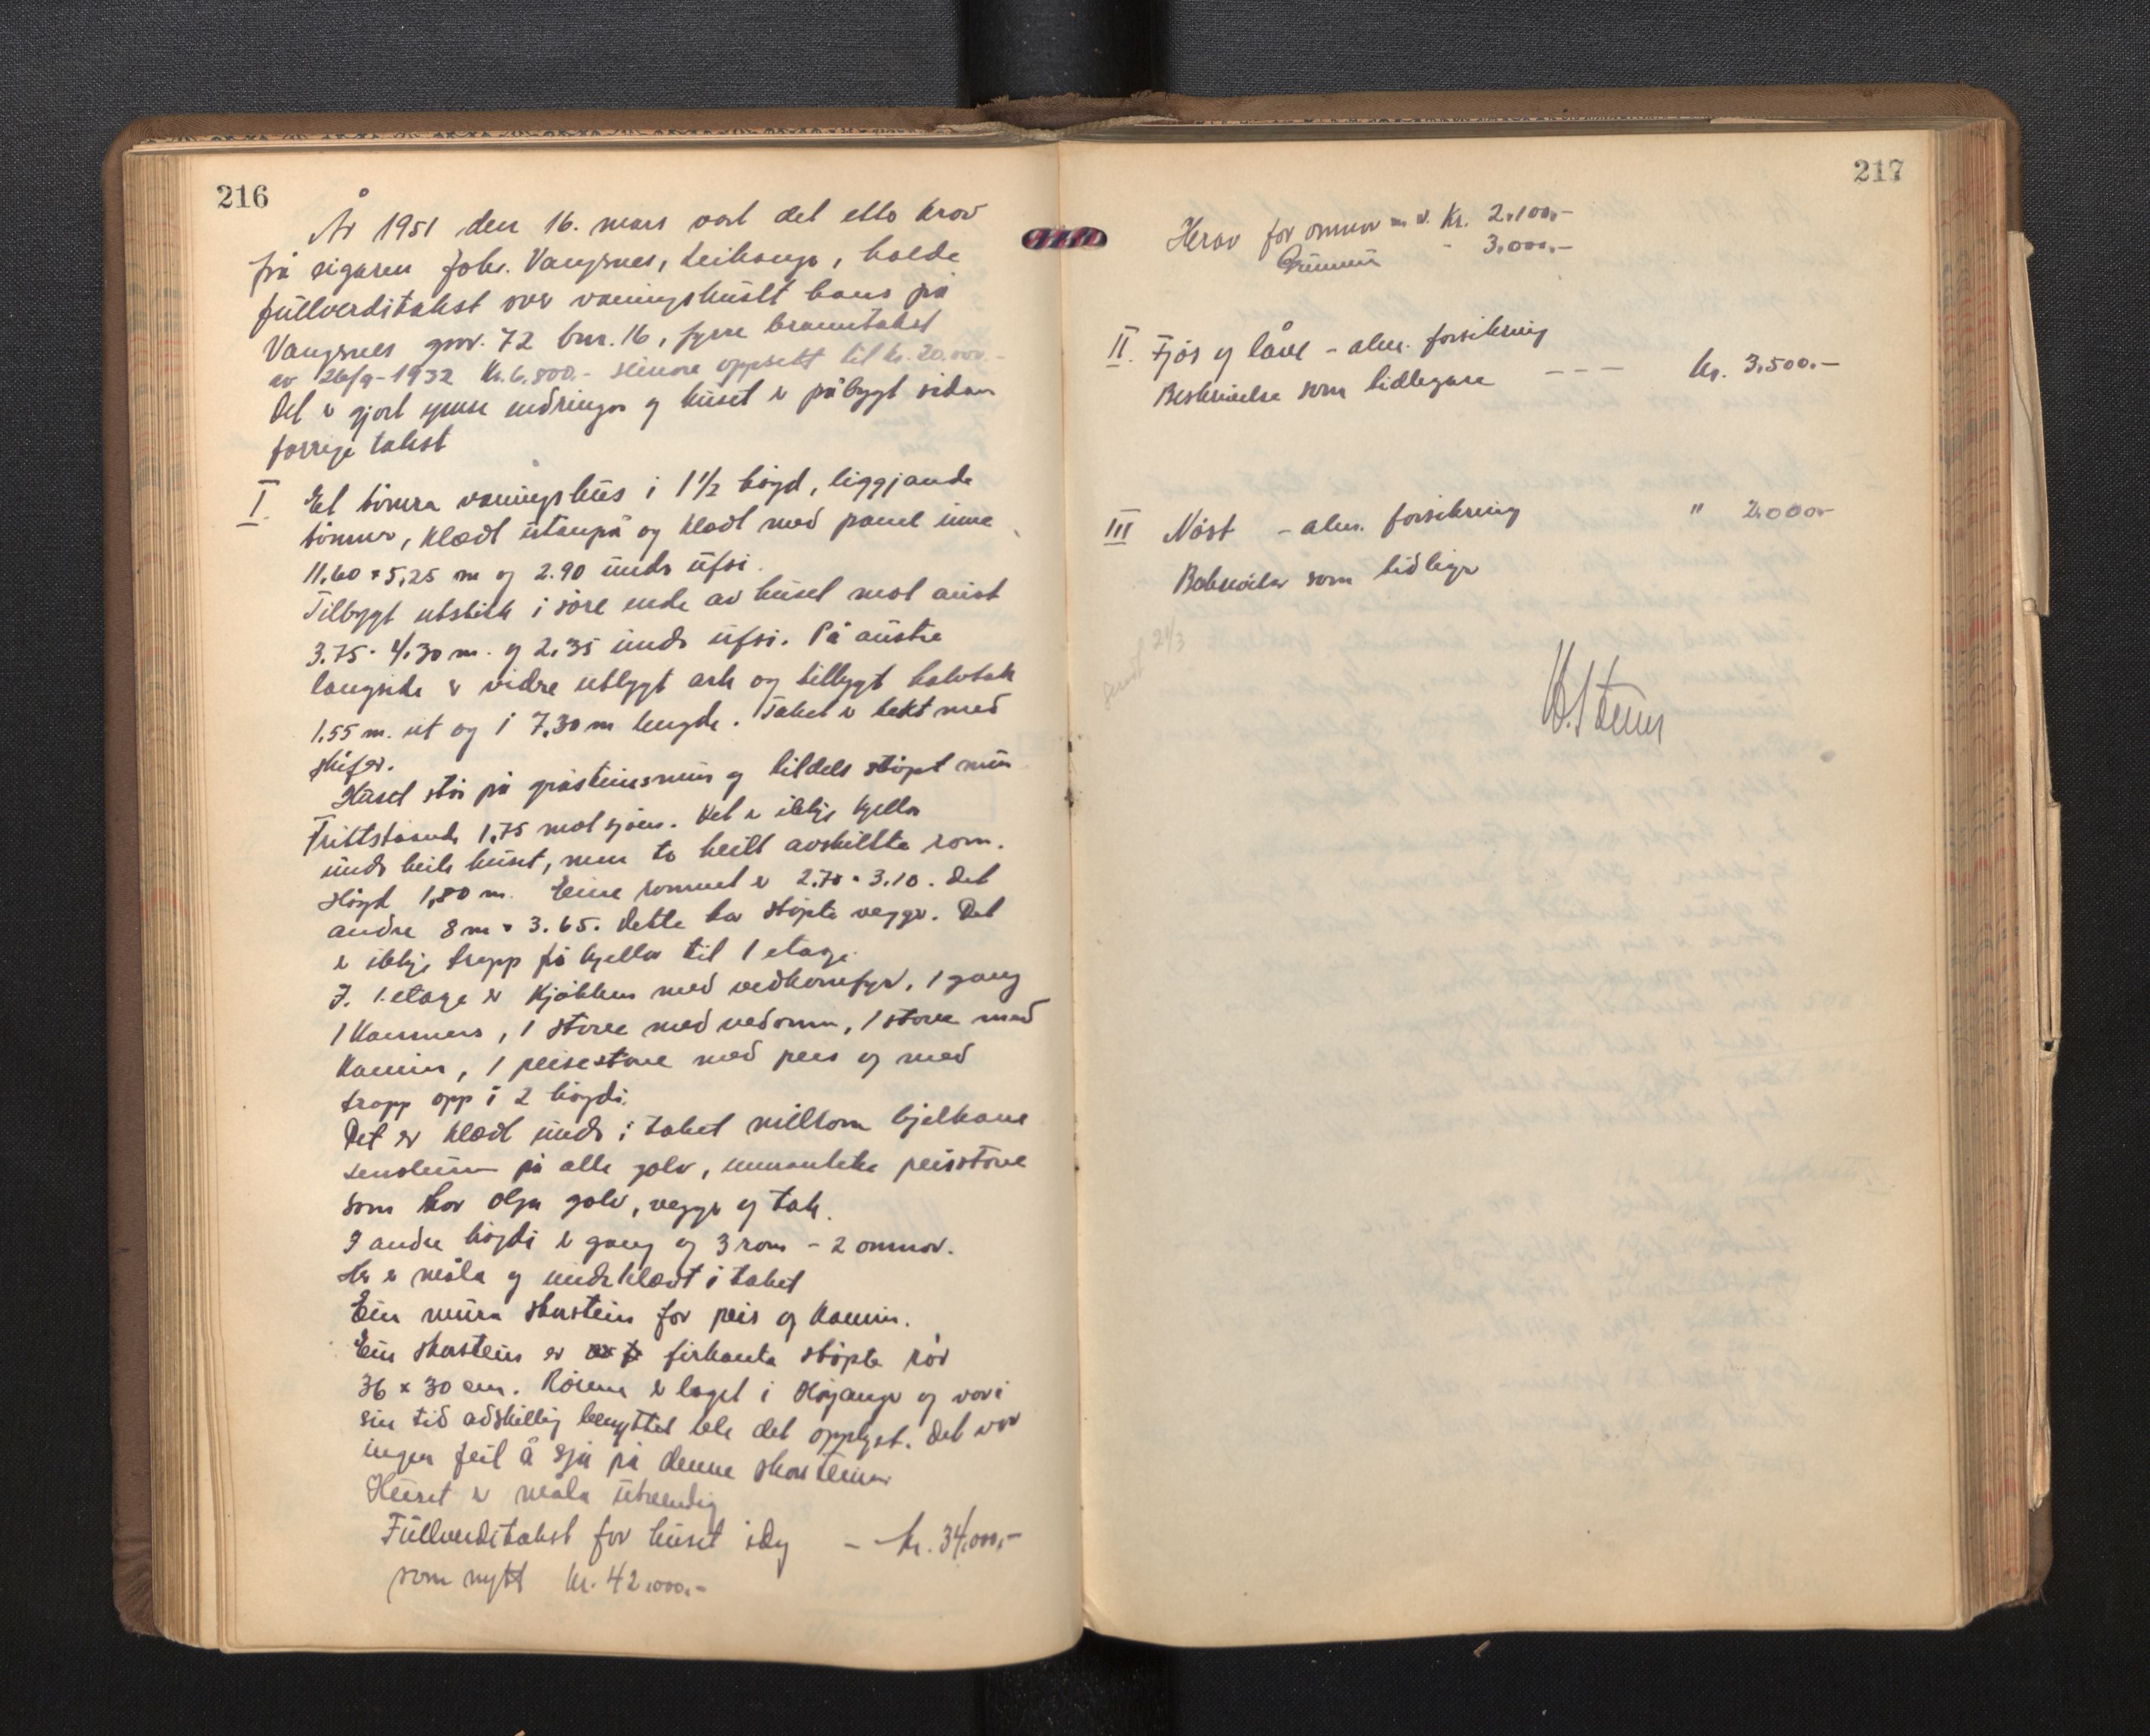 216
År 1951 den 16. mars vart det etter krav
frå eigaren Johs. Vangsnes, Leikanger, halde
fullverditakst over våningshuset hans på
Vangsnes gnr. 72 bnr. 16, fyrre branntakst
av 26/9-1932 kr. 6,800.- seinare oppsett til kr. 20.000.-
Det er gjort ymse endringar og huset er påbygt sidan
forrige takst
I. Eit tømra våningshus i 1 1/2 høgd, liggjande
tømmer, klædt utanpå og klædt med panel inne
11,60 x 5,25 m og 2.90 under ufsi.
Tilbygt utstikk i søre ende av huset mot aust
3.75 · 4.30 m. og 2.35 under ufsi. På austre
langside er vidre utbygt ark og tilbygt halvtak
1.55 m. ut og i 7,30 m lengde. Taket er tekt med
skifer.
Huset står på gråsteinsmur og tildels støpt mur
Frittståande 1,75 mot sjøen. Det er ikkje kjellar
under heile huset, men to heilt avskilte rom.
Høgd 1,80 m. Eine rommet er 2.70 · 3.10. Det
andre 8 m · 3.65. Dette har støpte veggar. Det
er ikkje trapp frå kjellar til 1 etage.
I. 1. etage er kjøkken med vedkomfyr, 1 gang
1 kammers, 1 stove med vedomn, 1 stove med
kamin, 1 peisestove med peis og med
trapp opp i 2 høgdi.
Det er klædt under i taket millom bjelkane
Linoleum på alle golv, unnateke peisstove
som har olja golv, veggar og tak.
I andre høgdi er gang og 3 rom - 2 omnar.
Her er måla og underklædt i taket
Ein mura skorstein for peis og kamin.
Ein skorstein er firkanta støpte rør
36 x 30 cm. Rørene er laget i Høyanger og vart i
sin tid adskillig benyttet ble det opplyst. Det var
ingen feil å sjå på denne skorsteinen
Huset er måla utvendig
Fullverditakst for huset idag - kr. 34.000,-
som nytt kr. 42.000.-
217
Herav for omnar m. v. kr. 2.100,-
Grunnmur - 3.000,-
II. Fjøs og låve - alm. forsikring
Beskrivelse som tidlegare - - - kr. 3.500.-
III Naust - alm. forsikring " 2.000.-
Beskrivelse som tidligare
24/3